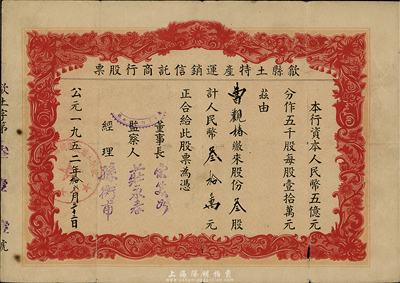 歙縣土特產運銷信託商行股票
本行資本人民幣五億元
分作五千股每股壹拾萬元
茲由
曹觀椿繳來股份叁股
計人民幣叁拾萬元
正合給此股票為憑
董事長
監察人
經理
公元一九五二年拾月二十一日
歙土字第 號
上海陽明拍賣